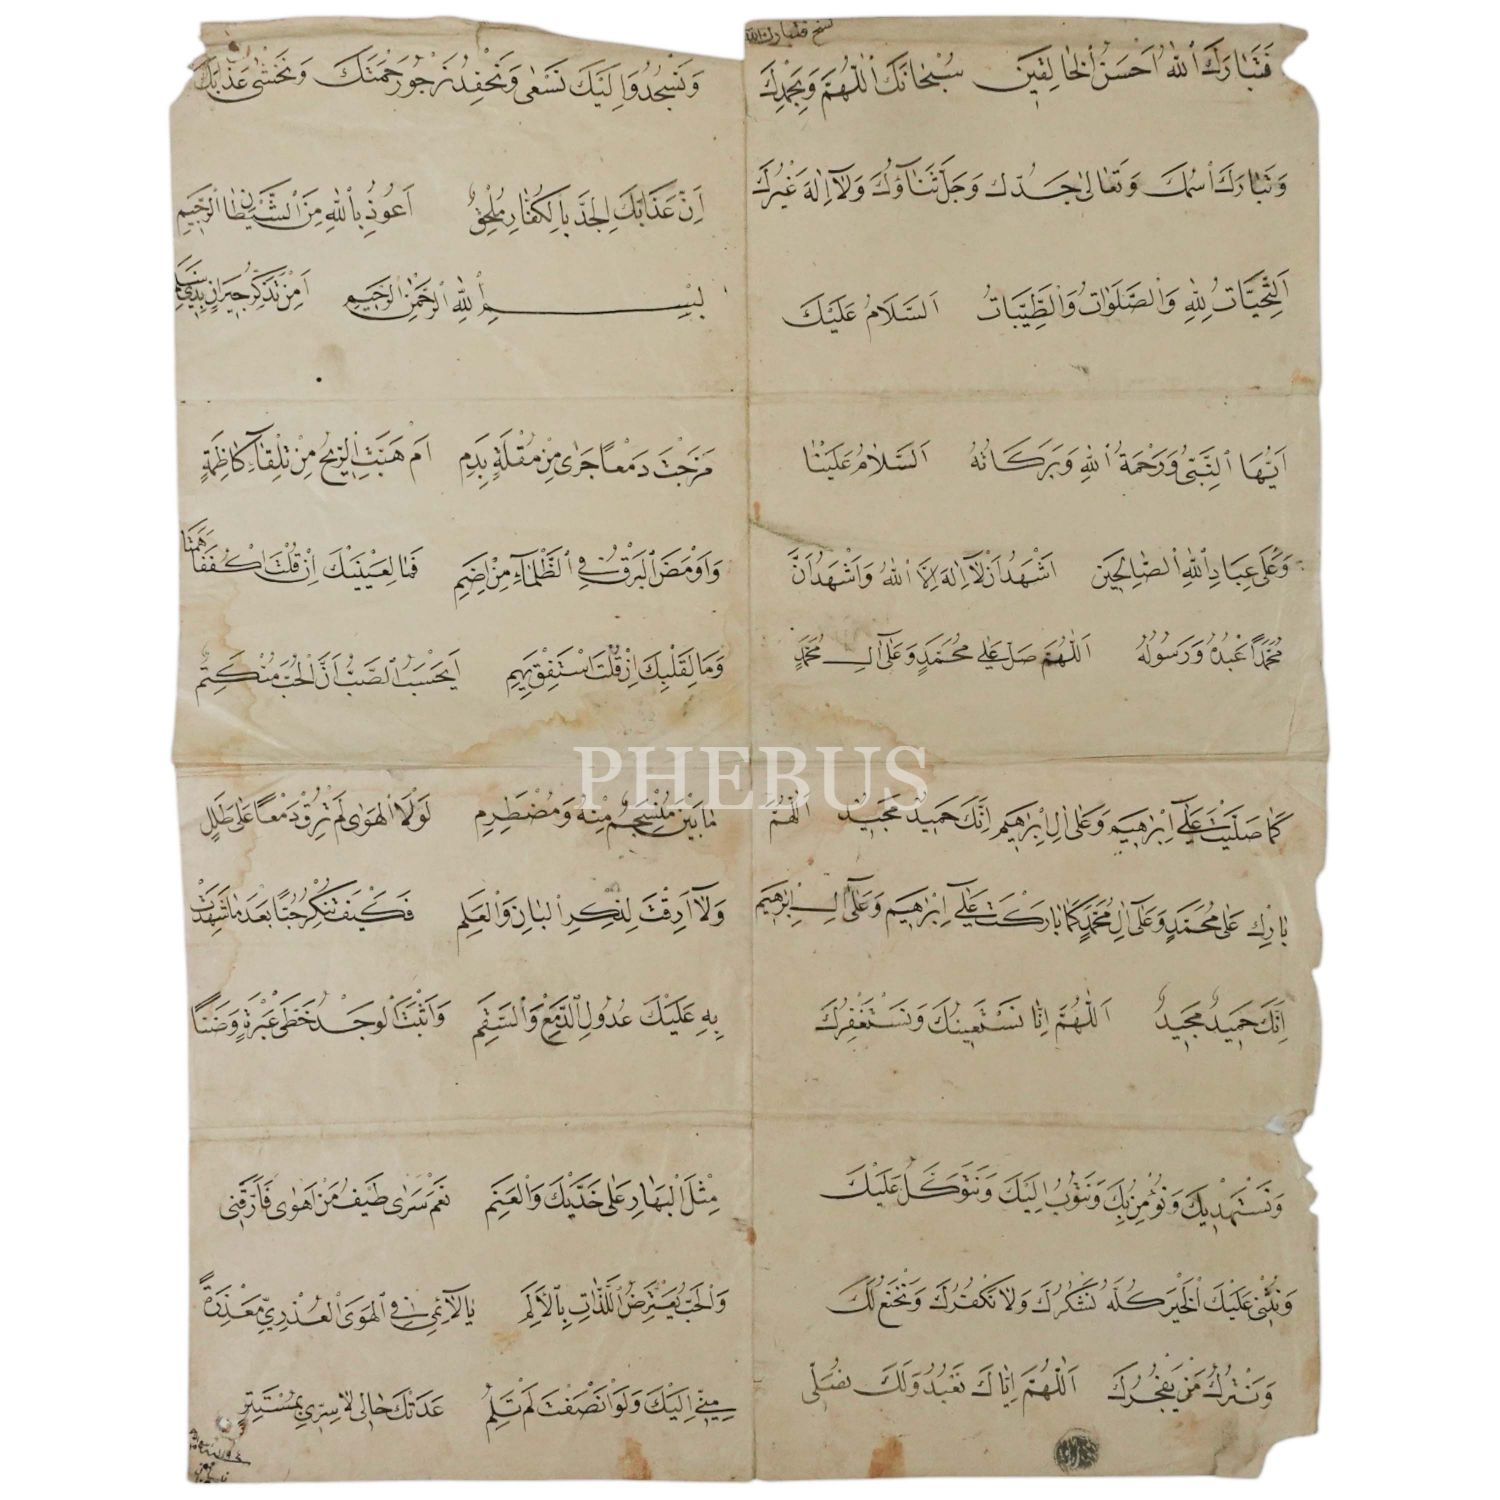 فَتَبَارَكَ اللهُ اَحْسَنُ الْخَالِقِينَ سُبْحَانَكَ اَللّٰهُمَّ وَبِحَمْدِكَ
وَتَبَارَكَ اسْمُكَ وَتَعَالٰى جَدُّكَ وَجَلَّ ثَنَاؤُكَ وَلَا اِلٰهَ غَيْرُكَ
اَلتَّحِيَّاتُ لِلّٰهِ وَالصَّلَوَاتُ وَالطَّيِّبَاتُ اَلسَّلَامُ عَلَيْكَ
اَيُّهَا النَّبِيُّ وَرَحْمَةُ اللهِ وَبَرَكَاتُهُ اَلسَّلَامُ عَلَيْنَا
وَعَلٰى عِبَادِ اللهِ الصَّالِحِينَ اَشْهَدُ اَنْ لَا اِلٰهَ اِلَّا اللهُ وَاَشْهَدُ اَنَّ
مُحَمَّدًا عَبْدُهُ وَرَسُولُهُ اَللّٰهُمَّ صَلِّ عَلٰى مُحَمَّدٍ وَعَلٰى اٰلِ مُحَمَّدٍ
كَمَا صَلَّيْتَ عَلٰى اِبْرٰهِيمَ وَعَلٰى اٰلِ اِبْرٰهِيمَ اِنَّكَ حَمِيدٌ مَجِيدٌ اَللّٰهُمَّ
بَارِكْ عَلٰى مُحَمَّدٍ وَعَلٰى اٰلِ مُحَمَّدٍ كَمَا بَارَكْتَ عَلٰى اِبْرٰهِيمَ وَعَلٰى اٰلِ اِبْرٰهِيمَ
اِنَّكَ حَمِيدٌ مَجِيدٌ اَللّٰهُمَّ اِنَّا نَسْتَعِينُكَ وَنَسْتَغْفِرُكَ
وَنَسْتَهْدِيكَ وَنُؤْمِنُ بِكَ وَنَتُوبُ اِلَيْكَ وَنَتَوَكَّلُ عَلَيْكَ
وَنُثْنِي عَلَيْكَ الْخَيْرَ كُلَّهُ نَشْكُرُكَ وَلَا نَكْفُرُكَ وَنَخْنَعُ لَكَ
وَنَتْرُكُ مَنْ يَفْجُرُكَ اَللّٰهُمَّ اِيَّاكَ نَعْبُدُ وَلَكَ نُصَلِّى
وَنَسْجُدُ وَاِلَيْكَ نَسْعٰى وَنَحْفِدُ نَرْجُو رَحْمَتَكَ وَنَخْشٰى عَذَابَكَ
اِنَّ عَذَابَكَ الْجِدَّ بِالْكُفَّارِ مُلْحِقٌ اَعُوذُ بِاللهِ مِنَ الشَّيْطَانِ الرَّجِيمِ
بِسْمِ اللهِ الرَّحْمٰنِ الرَّحِيمِ اَمِنْ تَذَكُّرِ جِيرَانٍ بِذِي سَلَمٍ
مَزَجْتَ دَمْعًا جَرٰى مِنْ مُقْلَةٍ بِدَمِ اَمْ هَبَّتِ الرِّيحُ مِنْ تِلْقَاءِ كَاظِمَةٍ
وَاَوْمَضَ الْبَرْقُ فِي الظَّلْمَاءِ مِنْ اِضَمِ فَمَا لِعَيْنَيْكَ اِنْ قُلْتَ اكْفُفَا هَمَتَا
وَمَا لِقَلْبِكَ اِنْ قُلْتَ اسْتَفِقْ يَهِمِ اَيَحْسَبُ الصَّبُّ اَنَّ الْحُبَّ مُنْكَتِمٌ
مَا بَيْنَ مُنْسَجِمٍ مِنْهُ وَمُضْطَرِمِ لَوْلَا الْهَوٰى لَمْ تُرِقْ دَمْعًا عَلٰى طَلَلٍ
وَلَا اَرِقْتَ لِذِكْرِ الْبَانِ وَالْعَلَمِ فَكَيْفَ تُنْكِرُ حُبًّا بَعْدَ مَا شَهِدَتْ
بِهِ عَلَيْكَ عُدُولُ الدَّمْعِ وَالسَّقَمِ وَاَثْبَتَ الْوَجْدُ خَطَّيْ عَبْرَةٍ وَضَنًا
مِثْلَ الْبَهَارِ عَلٰى خَدَّيْكَ وَالْعَنَمِ نَعَمْ سَرٰى طَيْفُ مَنْ اَهْوٰى فَاَرَّقَنِي
وَالْحُبُّ يَعْتَرِضُ اللَّذَّاتِ بِالْاَلَمِ يَا لَائِمِي فِي الْهَوَى الْعُذْرِيِّ مَعْذِرَةً
مِنِّي اِلَيْكَ وَلَوْ اَنْصَفْتَ لَمْ تَلُمِ عَدَتْكَ حَالِي لَا سِرِّي بِمُسْتَتِرٍ
PHEBUS